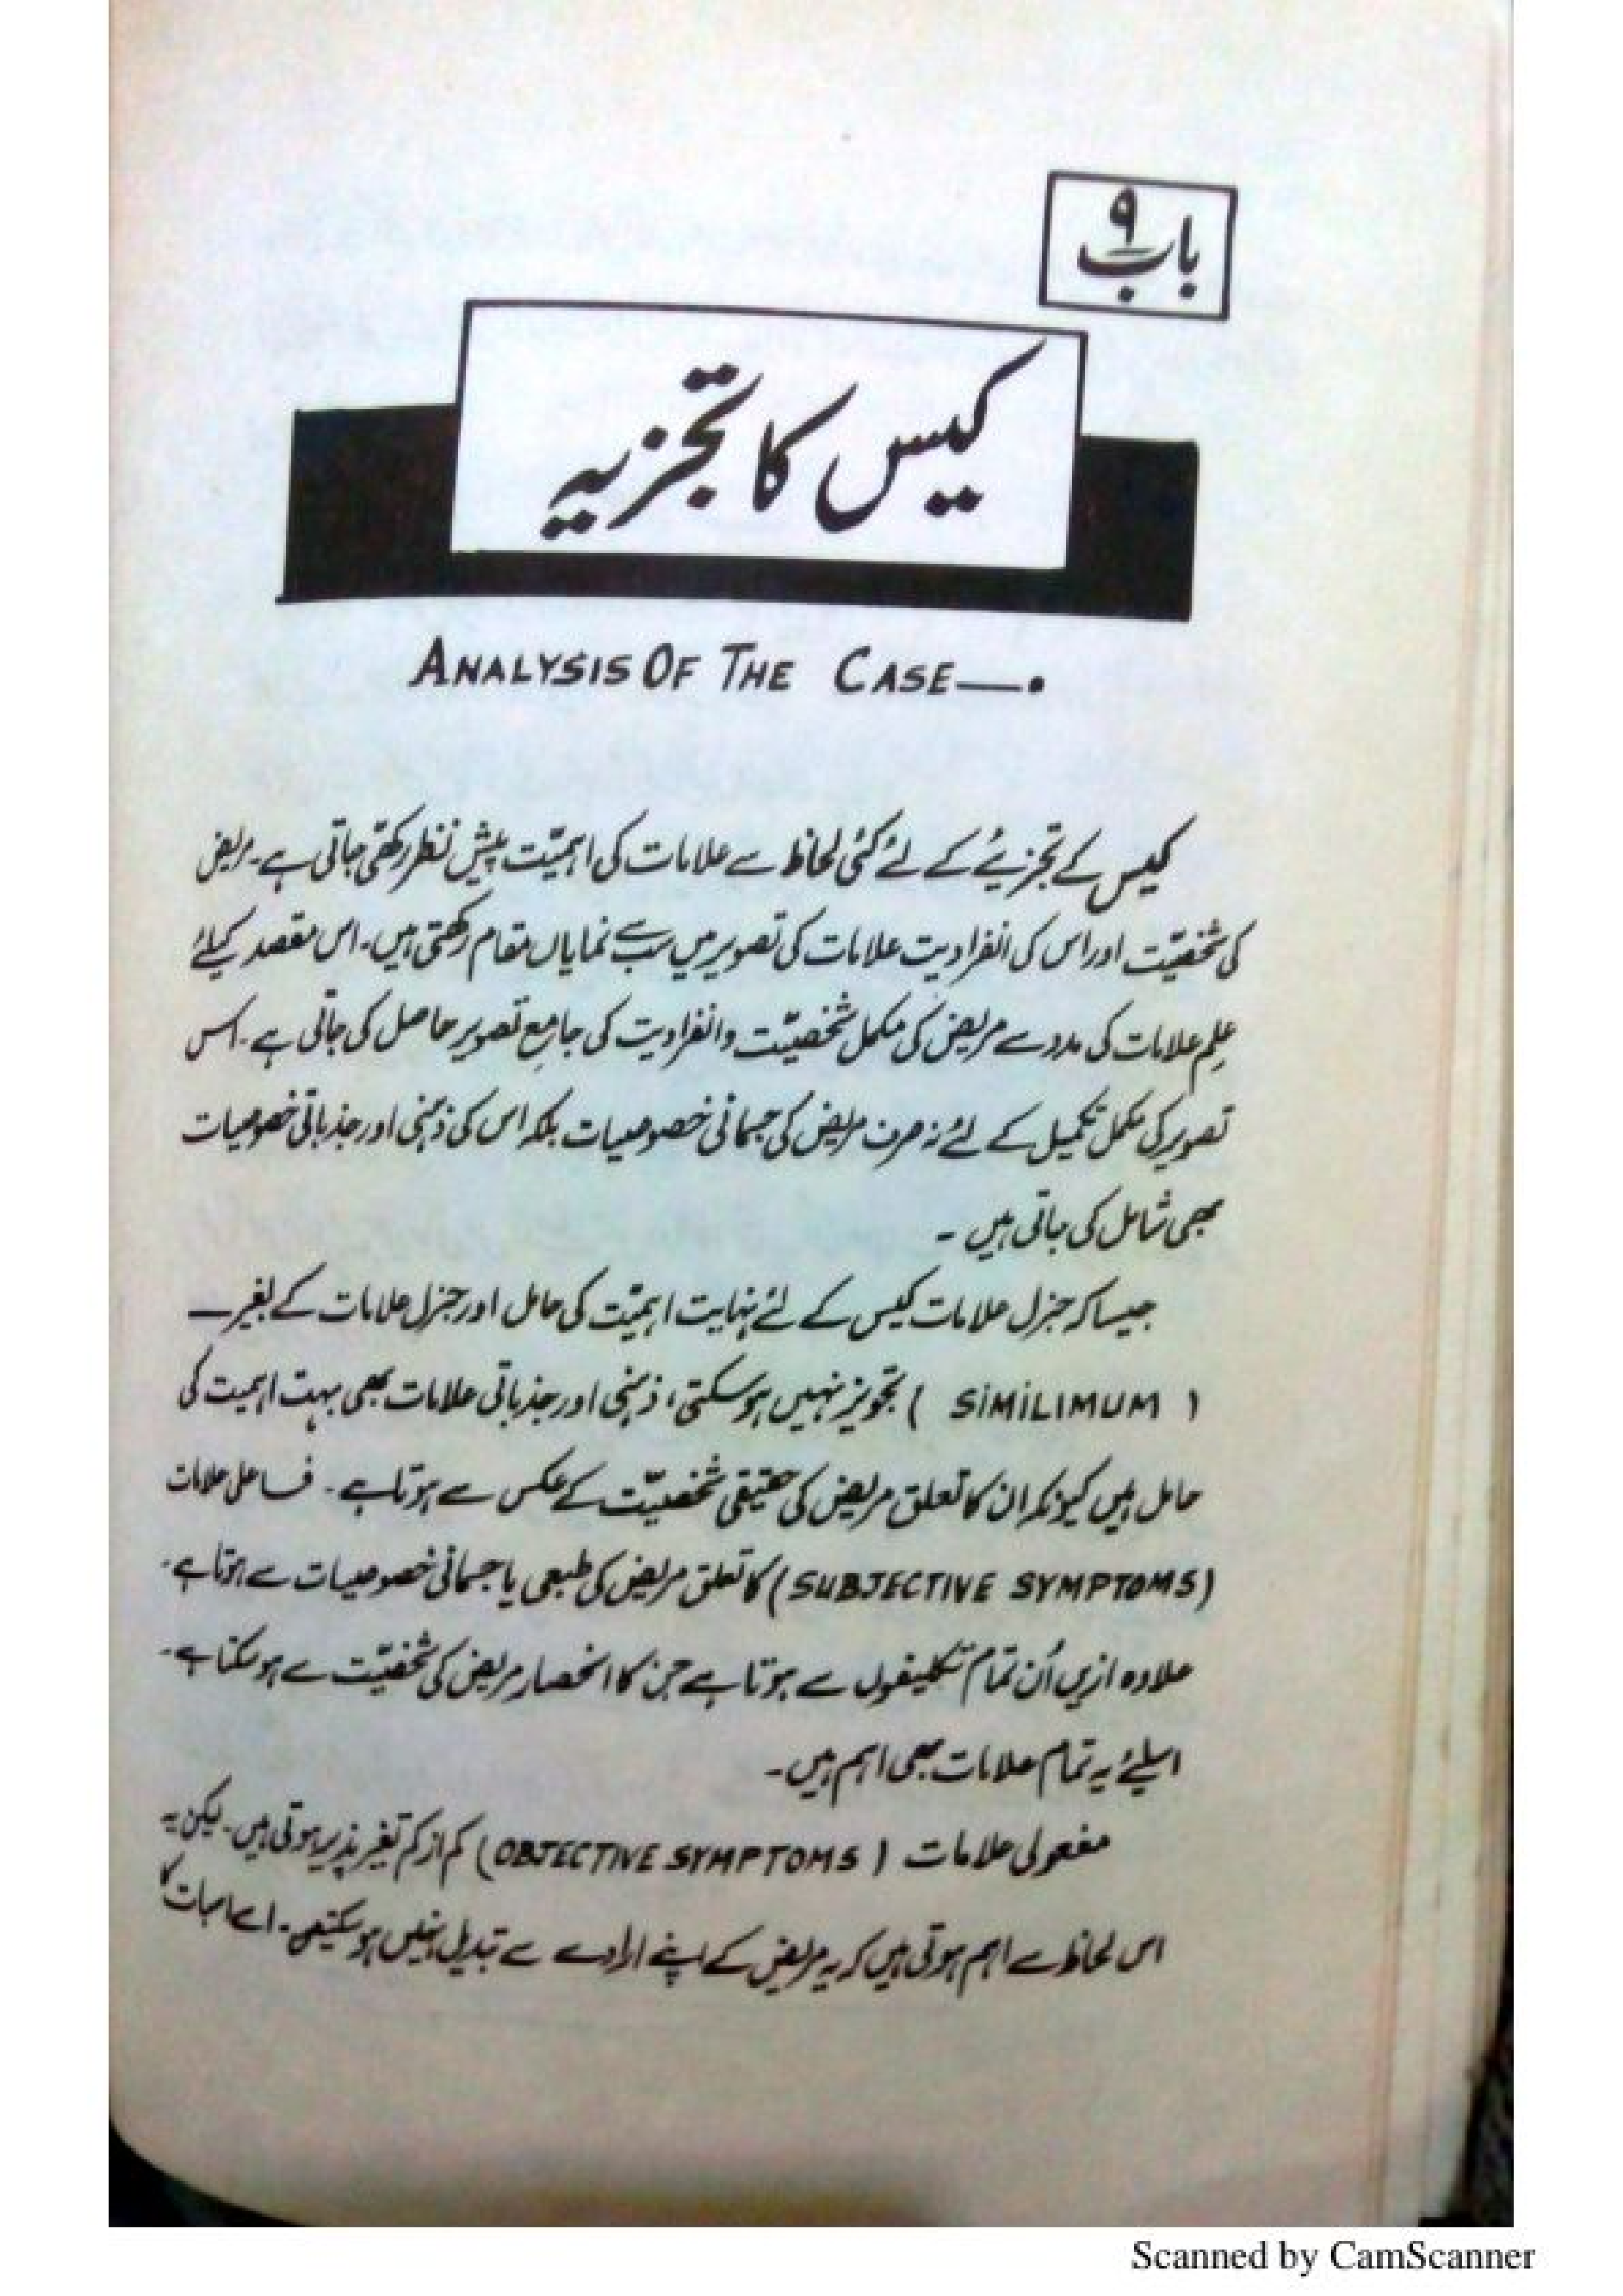 باب ۹
کیس کا تجزیہ
ANALYSIS OF THE CASE—.
کیس کے تجزیئے کے لئے کئی لحاظ سے علامات کی اہمیّت پیش نظر رکھی جاتی ہے۔ مریض
کی شخصیّت اور اس کی انفرادیت علامات کی تصویر میں سب سے نمایاں مقام رکھتی ہیں۔ اس مقصد کیلئے
علمِ علامات کی مدد سے مریض کی مکمل شخصیّت و انفرادیت کی جامع تصویر حاصل کی جاتی ہے۔ اس
تصویر کی مکمل تکمیل کے لئے نہ صرف مریض کی جسمانی خصوصیات بلکہ اس کی ذہنی اور جذباتی خصوصیات
بھی شامل کی جاتی ہیں ۔
جیسا کہ جنرل علامات کیس کے لئے نہایت اہمیّت کی حامل اور جنرل علامات کے بغیر —
( SIMILIMUM ) تجویز نہیں ہو سکتی، ذہنی اور جذباتی علامات بھی بہت اہمیت کی
حامل ہیں کیونکہ ان کا تعلق مریض کی حقیقی شخصیّت کے عکس سے ہوتا ہے ۔ فاعلی علامات
(SUBJECTIVE SYMPTOMS) کا تعلق مریض کی طبعی یا جسمانی خصوصیات سے ہوتا ہے۔
علاوہ ازیں اُن تمام تکلیفوں سے ہوتا ہے جن کا انحصار مریض کی شخصیّت سے ہو سکتا ہے۔
اسلئے یہ تمام علامات بھی اہم ہیں۔
مفعولی علامات ( OBJECTIVE SYMPTOMS) کم از کم تغیر پذیر ہوتی ہیں۔ لیکن یہ
اس لحاظ سے اہم ہوتی ہیں کہ یہ مریض کے اپنے ارادے سے تبدیل نہیں ہو سکتیں۔ کا
Scanned by CamScanner